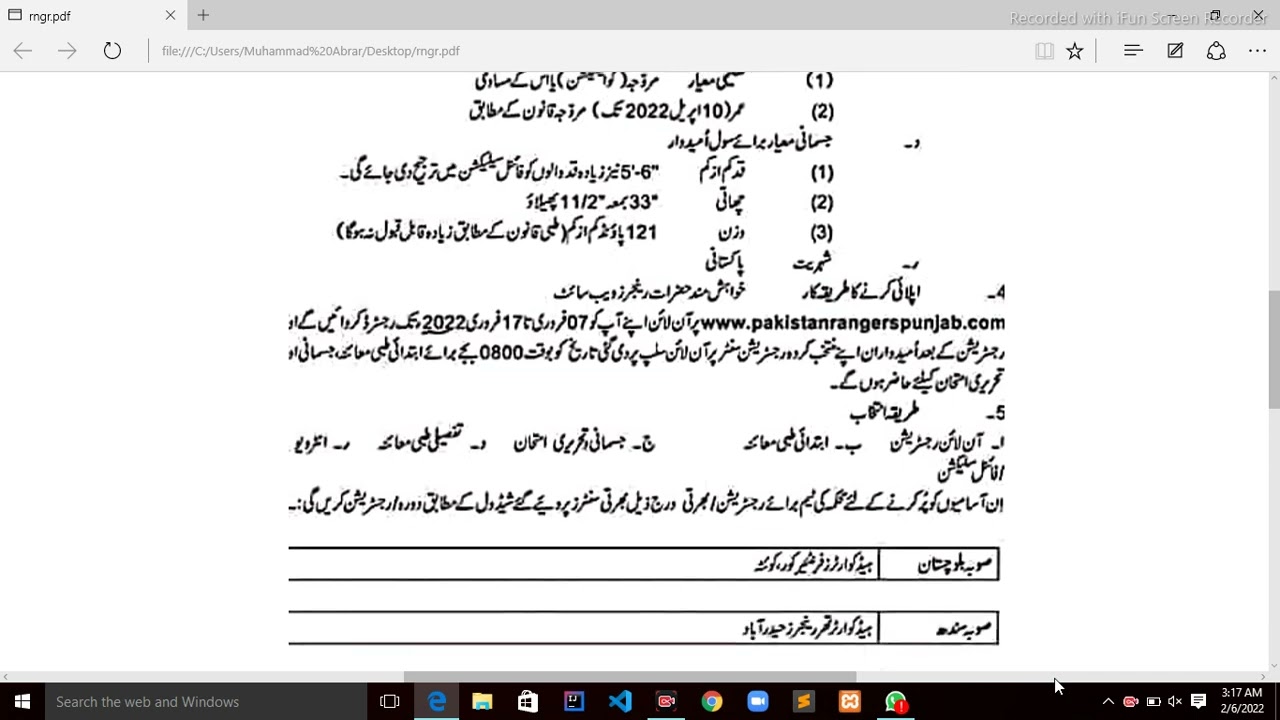 rngr.pdf
Recorded with iFun Screen Recorder
file:///C:/Users/Muhammad%20Abrar/Desktop/rngr.pdf
(1) تعلیمی معیار مروّجہ (کوالیفکیشن) یا اس کے مساوی
(2) عمر (10 اپریل 2022 تک) مروّجہ قانون کے مطابق
د۔ جسمانی معیار برائے سول اُمیدوار
(1) قد کم از کم 5'-6" نیز زیادہ قد والوں کو فائنل سلیکشن میں ترجیح دی جائے گی۔
(2) چھاتی 33" بمعہ 11/2" پھیلاؤ
(3) وزن 121 پاؤنڈ کم از کم (طبی قانون کے مطابق زیادہ قابلِ قبول نہ ہوگا)
ر۔ شہریت پاکستانی
4۔ اپلائی کرنے کا طریقہ کار خواہش مند حضرات رینجرز ویب سائٹ
www.pakistanrangerspunjab.com پر آن لائن اپنے آپ کو 07 فروری تا 17 فروری 2022ء تک رجسٹرڈ کروائیں گے او
رجسٹریشن کے بعد اُمیدواران اپنے منتخب کردہ رجسٹریشن سنٹر پر آن لائن سلپ پر دی گئی تاریخ کو بوقت 0800 بجے برائے ابتدائی طبی معائنہ، جسمانی او
تحریری امتحان کیلئے حاضر ہوں گے۔
5۔ طریقہ انتخاب
ا۔ آن لائن رجسٹریشن ب۔ ابتدائی طبی معائنہ ج۔ جسمانی و تحریری امتحان د۔ تفصیلی طبی معائنہ ر۔ انٹرویو
/فائنل سلیکشن
اِن آسامیوں کو پُر کرنے کے لئے محکمہ کی ٹیم برائے رجسٹریشن / بھرتی درج ذیل بھرتی سنٹرز پر دیئے گئے شیڈول کے مطابق دورہ / رجسٹریشن کریں گی:۔
صوبہ بلوچستان ہیڈکوارٹرز فرنٹیئر کور، کوئٹہ
صوبہ سندھ ہیڈکوارٹر تھر رینجرز حیدرآباد
Search the web and Windows
3:17 AM
2/6/2022